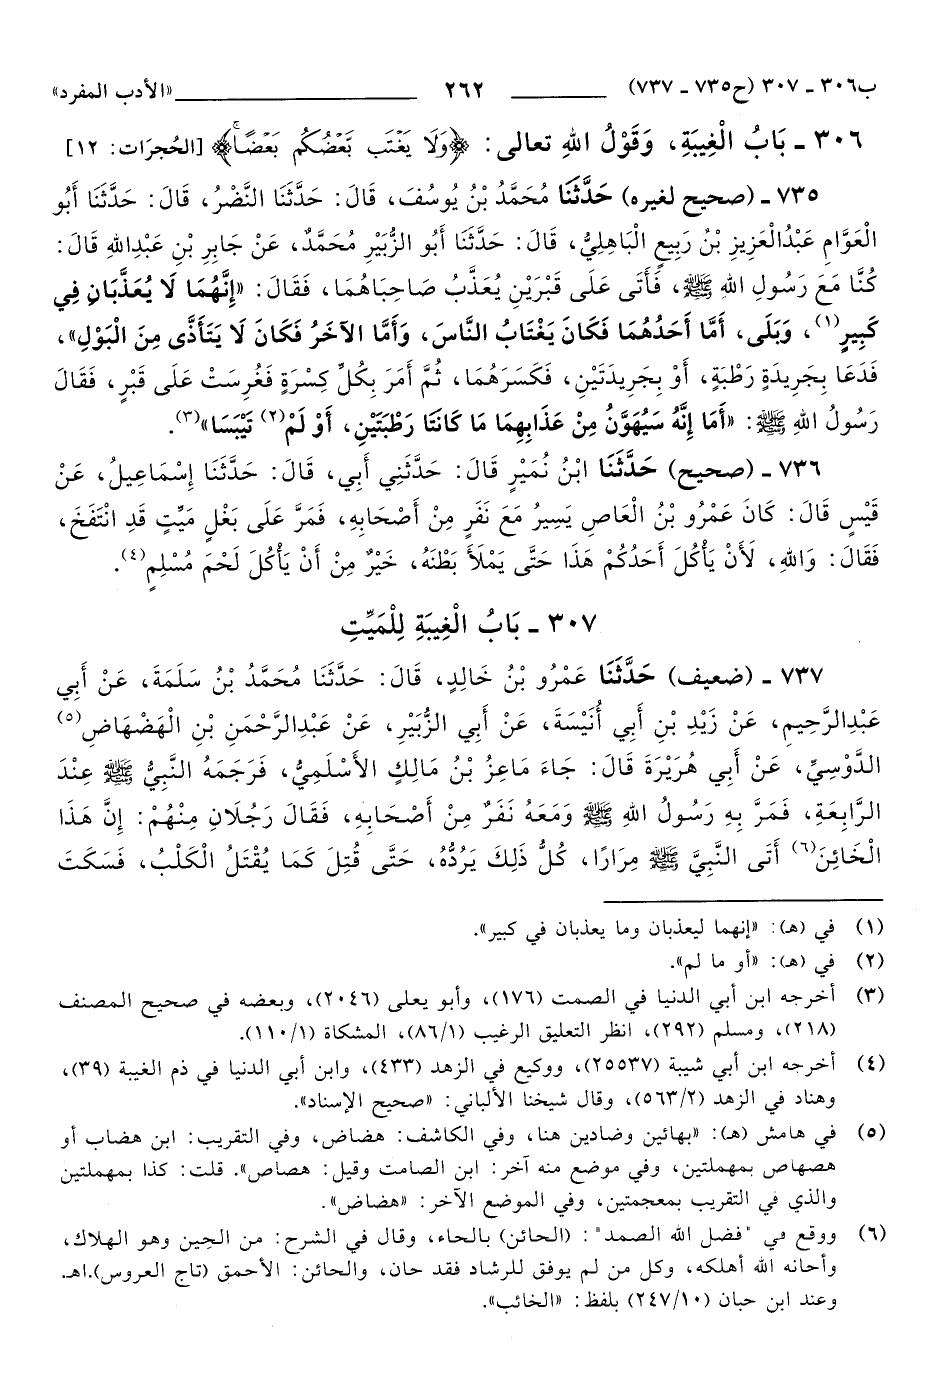 ب٣٠٦ ـ ٣٠٧ (ح٧٣٥ ـ ٧٣٧) ٢٦٢ «الأدب المفرد»
٣٠٦ ـ بَابُ الْغِيبَةِ، وَقَوْلُ اللهِ تعالى: ﴿وَلَا يَغْتَب بَّعْضُكُم بَعْضًا﴾ [الحُجرَات: ١٢]
٧٣٥ ـ (صحيح لغيره) حَدَّثَنَا مُحَمَّدُ بْنُ يُوسُفَ، قَالَ: حَدَّثَنَا النَّضْرُ، قَالَ: حَدَّثَنَا أَبُو
الْعَوَّامِ عَبْدُالْعَزِيزِ بْنُ رَبِيعٍ الْبَاهِلِيُّ، قَالَ: حَدَّثَنَا أَبُو الزُّبَيْرِ مُحَمَّدٌ، عَنْ جَابِرِ بْنِ عَبْدِاللهِ قَالَ:
كُنَّا مَعَ رَسُولِ اللهِ ﷺ، فَأَتَى عَلَى قَبْرَيْنِ يُعَذَّبُ صَاحِبَاهُمَا، فَقَالَ: «إِنَّهُمَا لَا يُعَذَّبَانِ فِي
كَبِيرٍ(١)، وَبَلَى، أَمَّا أَحَدُهُمَا فَكَانَ يَغْتَابُ النَّاسَ، وَأَمَّا الآخَرُ فَكَانَ لَا يَتَأَذَّى مِنَ الْبَوْلِ»،
فَدَعَا بِجَرِيدَةٍ رَطْبَةٍ، أَوْ بِجَرِيدَتَيْنِ، فَكَسَرَهُمَا، ثُمَّ أَمَرَ بِكُلِّ كِسْرَةٍ فَغُرِسَتْ عَلَى قَبْرٍ، فَقَالَ
رَسُولُ اللهِ ﷺ: «أَمَا إِنَّهُ سَيُهَوَّنُ مِنْ عَذَابِهِمَا مَا كَانَتَا رَطْبَتَيْنِ، أَوْ لَمْ(٢) تَيْبَسَا»(٣).
٧٣٦ ـ (صحيح) حَدَّثَنَا ابْنُ نُمَيْرٍ قَالَ: حَدَّثَنِي أَبِي، قَالَ: حَدَّثَنَا إِسْمَاعِيلُ، عَنْ
قَيْسٍ قَالَ: كَانَ عَمْرُو بْنُ الْعَاصِ يَسِيرُ مَعَ نَفَرٍ مِنْ أَصْحَابِهِ، فَمَرَّ عَلَى بَغْلٍ مَيِّتٍ قَدِ انْتَفَخَ،
فَقَالَ: وَاللهِ، لَأَنْ يَأْكُلَ أَحَدُكُمْ هَذَا حَتَّى يَمْلَأَ بَطْنَهُ، خَيْرٌ مِنْ أَنْ يَأْكُلَ لَحْمَ مُسْلِمٍ(٤).
٣٠٧ ـ بَابُ الْغِيبَةِ لِلْمَيِّتِ
٧٣٧ ـ (ضعيف) حَدَّثَنَا عَمْرُو بْنُ خَالِدٍ، قَالَ: حَدَّثَنَا مُحَمَّدُ بْنُ سَلَمَةَ، عَنْ أَبِي
عَبْدِالرَّحِيمِ، عَنْ زَيْدِ بْنِ أَبِي أُنَيْسَةَ، عَنْ أَبِي الزُّبَيْرِ، عَنْ عَبْدِالرَّحْمَنِ بْنِ الْهَضْهَاضِ(٥)
الدَّوْسِيِّ، عَنْ أَبِي هُرَيْرَةَ قَالَ: جَاءَ مَاعِزُ بْنُ مَالِكٍ الأَسْلَمِيُّ، فَرَجَمَهُ النَّبِيُّ ﷺ عِنْدَ
الرَّابِعَةِ، فَمَرَّ بِهِ رَسُولُ اللهِ ﷺ وَمَعَهُ نَفَرٌ مِنْ أَصْحَابِهِ، فَقَالَ رَجُلَانِ مِنْهُمْ: إِنَّ هَذَا
الْخَائِنَ(٦) أَتَى النَّبِيَّ ﷺ مِرَارًا، كُلُّ ذَلِكَ يَرُدُّهُ، حَتَّى قُتِلَ كَمَا يُقْتَلُ الْكَلْبُ، فَسَكَتَ
(١) في (هـ): «إنهما ليعذبان وما يعذبان في كبير».
(٢) في (هـ): «أو ما لم».
(٣) أخرجه ابن أبي الدنيا في الصمت (١٧٦)، وأبو يعلى (٢٠٤٦)، وبعضه في صحيح المصنف
(٢١٨)، ومسلم (٢٩٢)، انظر التعليق الرغيب (٨٦/١)، المشكاة (١١٠/١).
(٤) أخرجه ابن أبي شيبة (٢٥٥٣٧)، ووكيع في الزهد (٤٣٣)، وابن أبي الدنيا في ذم الغيبة (٣٩)،
وهناد في الزهد (٥٦٣/٢)، وقال شيخنا الألباني: «صحيح الإسناد».
(٥) في هامش (هـ): «بهائين وضادين هنا، وفي الكاشف: هضاض، وفي التقريب: ابن هضاب أو
هصهاص بمهملتين، وفي موضع منه آخر: ابن الصامت وقيل: هصاص». قلت: كذا بمهملتين
والذي في التقريب بمعجمتين، وفي الموضع الآخر: «هضاض».
(٦) ووقع في "فضل الله الصمد": (الحائن) بالحاء، وقال في الشرح: من الحِين وهو الهلاك،
وأحانه الله أهلكه، وكل من لم يوفق للرشاد فقد حان، والحائن: الأحمق (تاج العروس).اهـ.
وعند ابن حبان (٢٤٧/١٠) بلفظ: «الخائب».